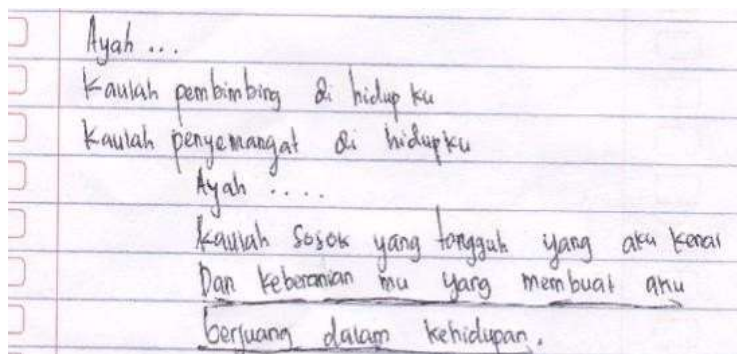 Ayah ...
Kaulah pembimbing di hidup ku
Kaulah penyemangat di hidupku
Ayah ....
Kaulah sosok yang tangguh yang aku kenal
Dan keberanian mu yang membuat aku
berjuang dalam kehidupan.